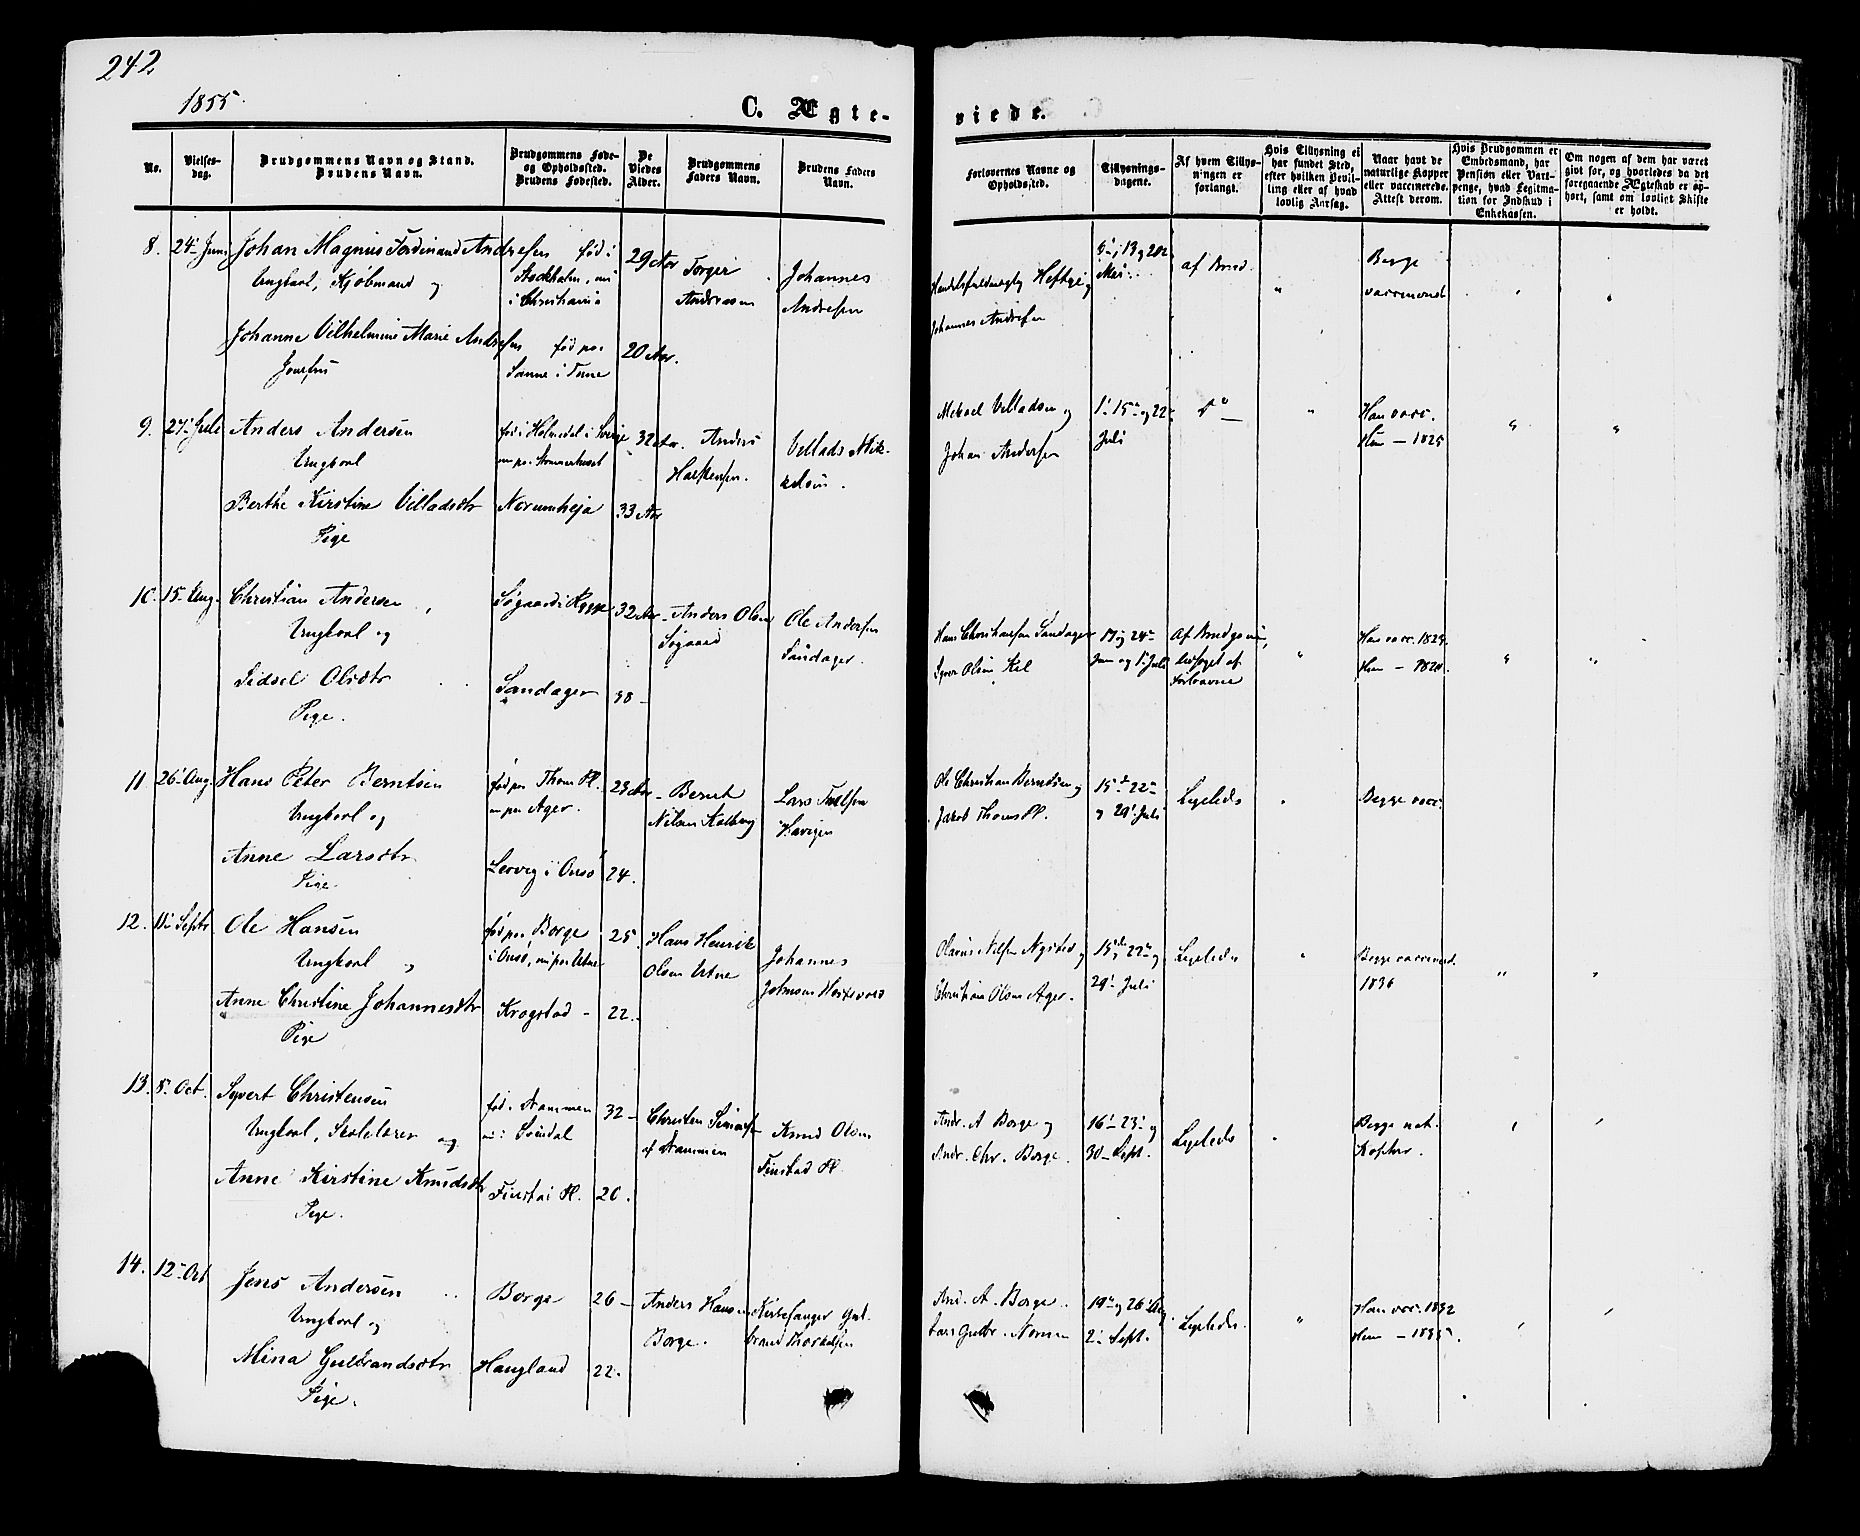 242
1855.
C. Ægte-
viede.
No.
Vielses-
dag.
Brudgommens Navn og Stand.
Brudens Navn.
Brudgommens Føde-
og Opholdssted.
Brudens Fødested.
De
Viedes
Alder.
Brudgommens
Faders Navn.
Brudens Faders
Navn.
Forlovernes Navne og
Opholdssted.
Tillysnings-
dagene.
Af hvem Tillys-
ningen er
forlangt.
Hvis Tillysning ei
har fundet Sted,
efter hvilken Bevil-
ling eller af hvad
lovlig Aarsag.
Naar havt de
naturlige Kopper
eller vaccinerede.
Attest derom.
Hvis Brudgommen er
Embedsmand, har
Pension eller Vart-
penge, hvad Legitima-
tion for Indskud i
Enkekassen.
Om nogen af dem har været
gift før, og hvorledes da det
foregaaende Ægteskab er op-
hørt, samt om lovligt Skifte
er holdt.
8. 24 Juni
Johan Magnus Ferdinand Andresen
Ungkarl, Kjøbmand og
Johanne Vilhelmine Marie Andresen
født i
Stockholm, nu
i Christiania
født paa
Sanne i
29 Aar
20 Aar.
Torger
Andreasen
Johannes
Andresen
Heftye og
Johannes Andresen
6, 13 og 20
Mai
af Brud.
Begge
vaccineret
9. 27 Juli
Anders Andersen
Ungkarl
Berthe Kirstine Villadsdtr
Pige
fød i Holmedal i Sverige
Norumheja
32 Aar.
33 Aar
Anders
Villads Mik-
kelsen.
Mikael Villadsen og
Johan Andersen
1, 15 og 22
Juli
Do
Han vacc.
Hun – 1825
10. 15 Aug.
Christian Andersen
Ungkarl og
Sidsel Olsdtr
Pige.
Søgaard i Rygge
Sandager
32 Aar
38 –
Anders Olsen
Søgaard
Ole Andersen
Sandager.
Hans Christiansen Sandager
Olsen Kil
17 og 24
Juni og 1 Juli
Af Brudgommen,
ledsaget af
Forloverne
Han vacc. 1829.
Hun – 1820.
11 26 Aug.
Hans Peter Berntsen
Ungkarl og
Anne Larsdtr
Pige.
født paa Thom Pl.
nu paa Ager.
Lervig i Onsø
23 Aar
24.
Bernt
Nilsen Kolberg
Lars
Ole Christian Berntsen og
Jakob Thom Pl.
15 22
og 29 Juli
Ligeledes
Begge vacc.
12. 11 Septr
Ole Hansen
Ungkarl og
Anne Christine Johannesdtr
Pige
født paa Borge
i Onsø, nu paa Utne
Krogstad –
25.
22.
Hans Henrik
Olsen Utne
Johannes
Johnsen
Olavus Nilsen Nysted og
Christian Olsen Ager.
15, 22 og
29 Juli
Ligeledes
Begge vaccineret.
1836
13. 5 Oct.
Syvert Christensen
Ungkarl, Skolelærer og
Anne Kirstine Knudsdtr
Pige.
fød i Drammen
nu i
Finstad Pl.
32 –
20.
Christen
af Drammen
Knud Olsen
Finstad Pl.
Andr. A Borge og
Andr. Chr. Borge.
16 23 og
30 Sept.
Ligeledes
Begge nat.
Kopper.
14. 12 Oct
Jens Andersen
Ungkarl og
Mina Gulbrandsdtr
Pige.
Borge
Haugland
26 –
22.
Anders Hansen
Borge.
Kirkesanger Gul-
brand Thorkelsen
And. A. Borge
Lars Gulbr.
19 og 26 Aug
2 Sept.
Ligeledes.
Han vacc. 1832
Hun – 1835.